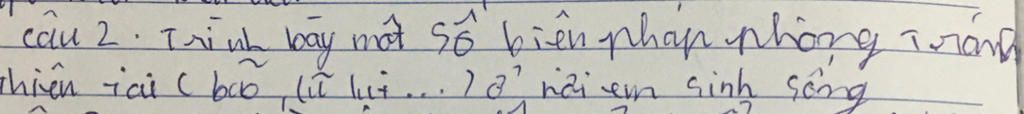 câu 2. Trình bày một số biện pháp phòng tránh
thiên tai (bão, lũ lụt...) ở nơi em sinh sống